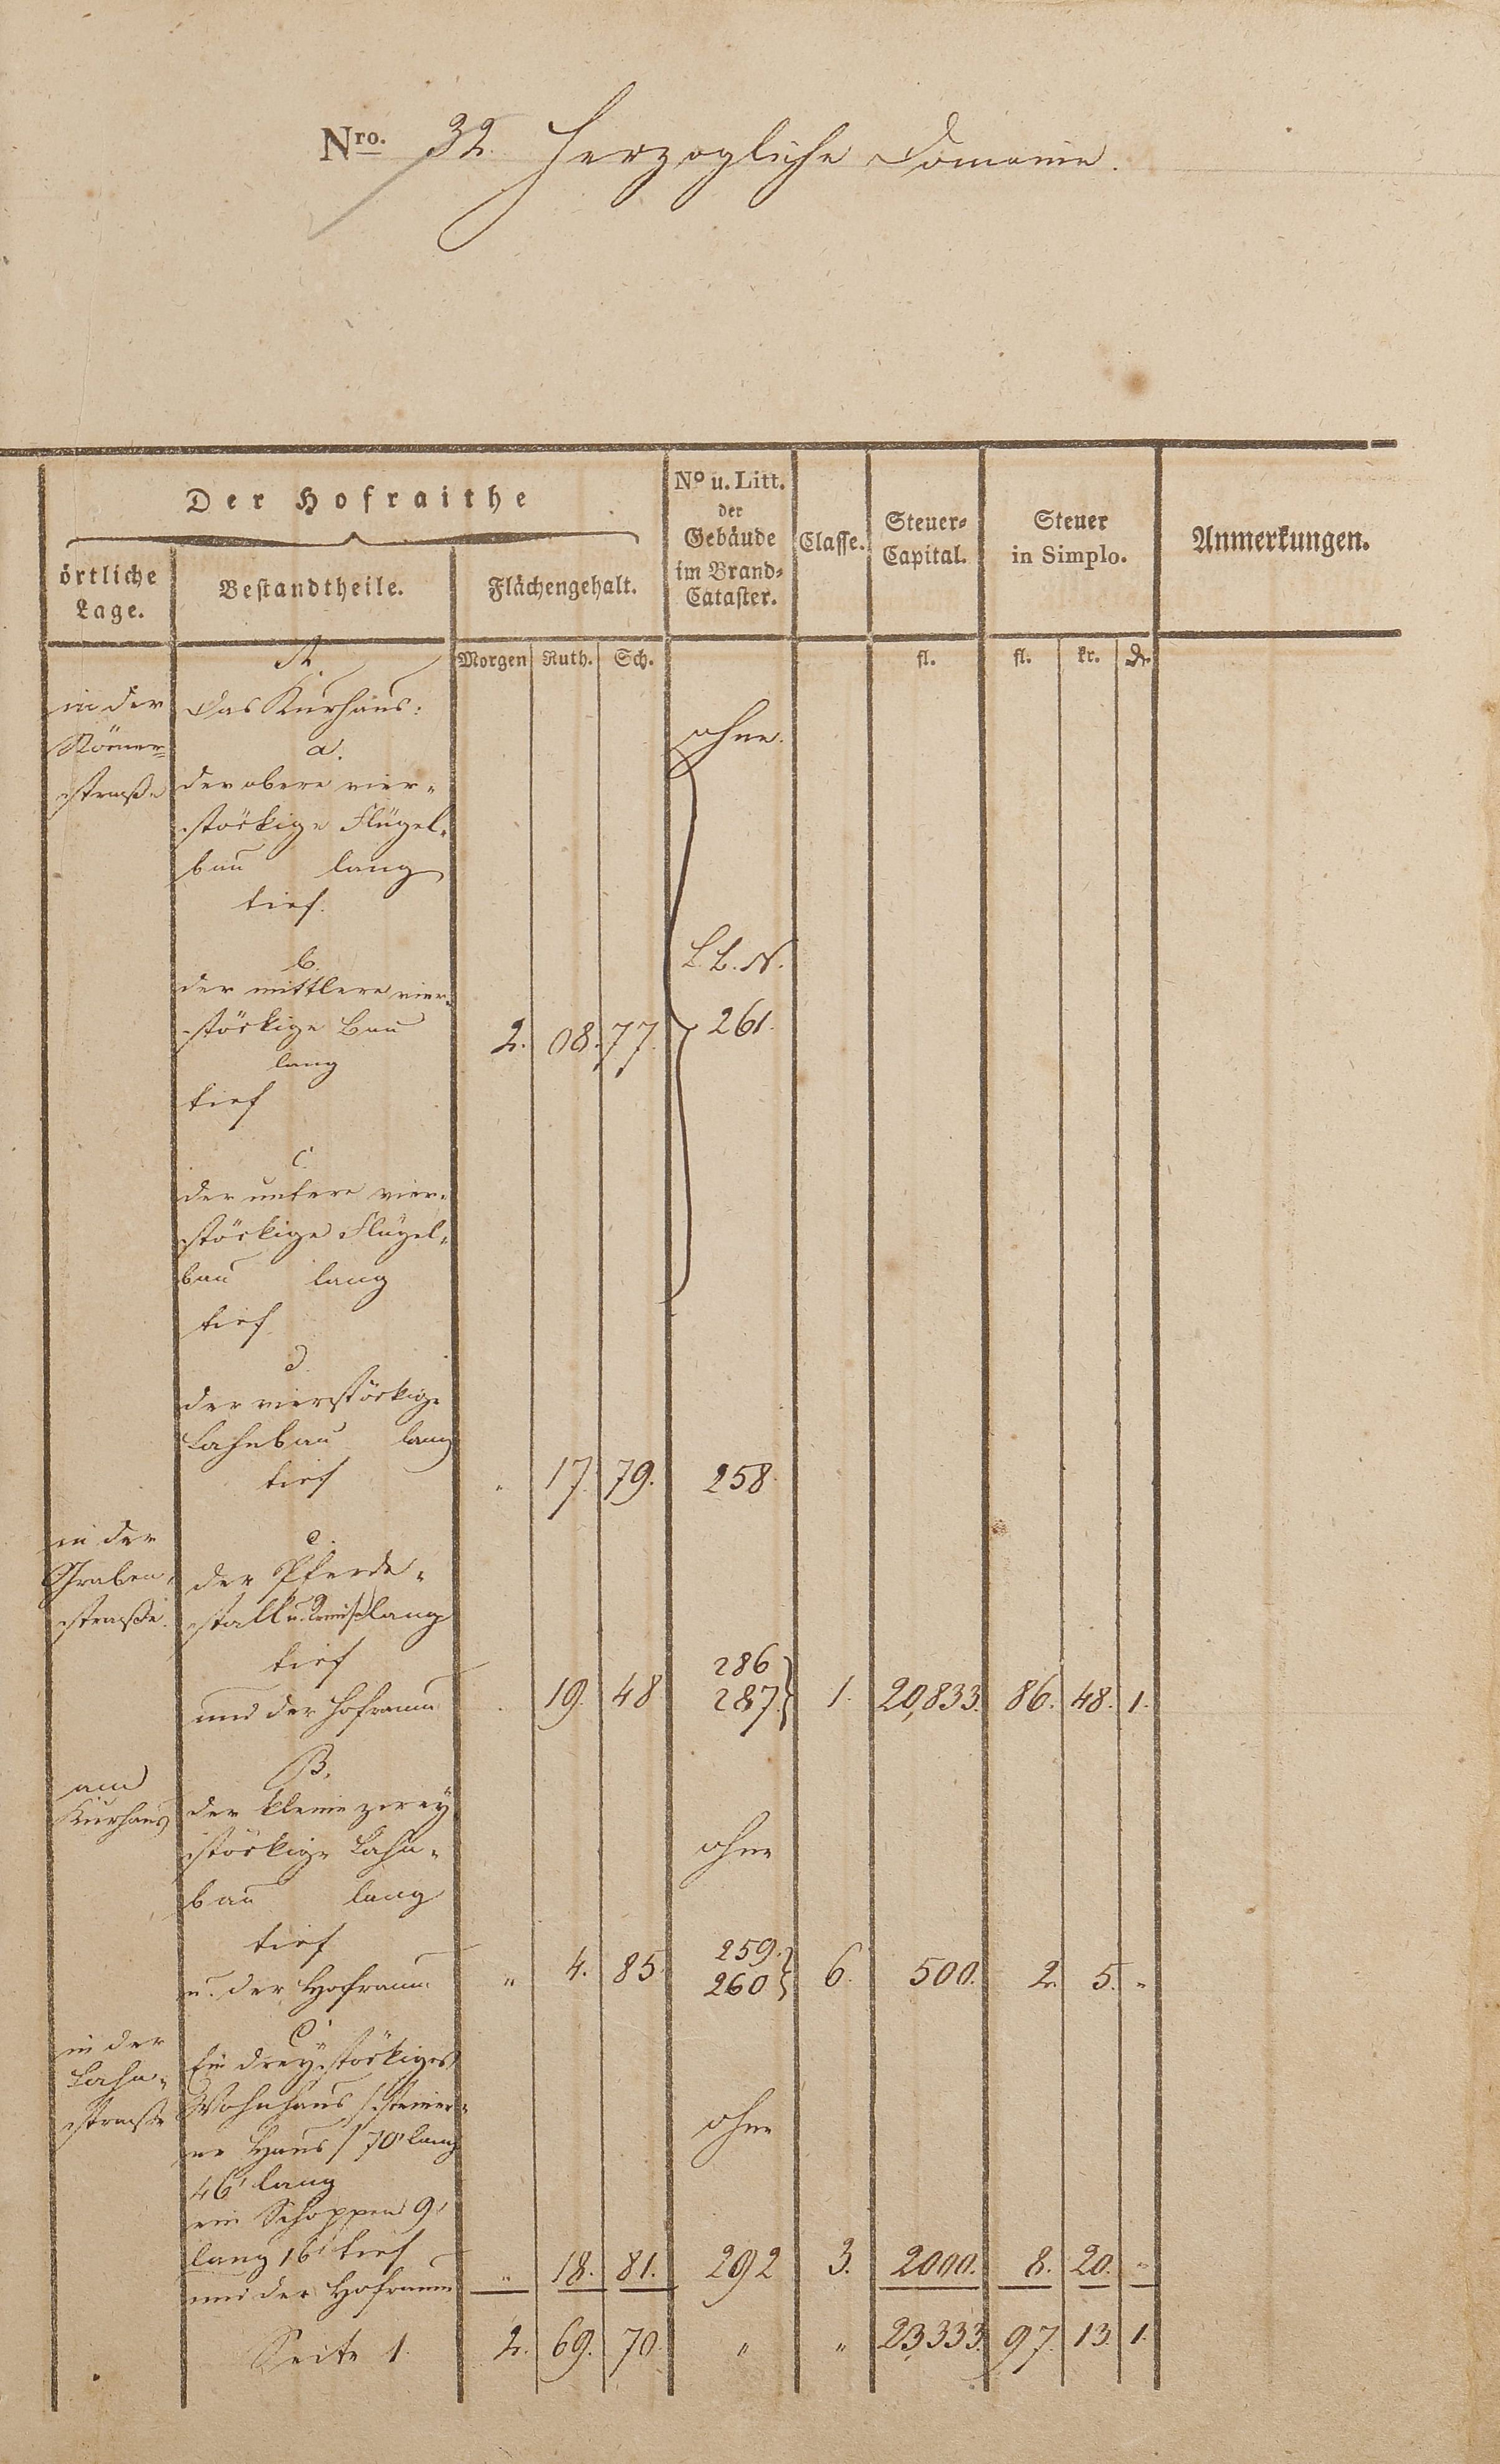 Nro. 32. Herzogliche Domaine.
Der Hofraithe
No u. Litt. der Gebäude im Brand-Cataster.
Classe.
Steuer-Capital.
Steuer in Simplo.
Anmerkungen.
örtliche Lage.
Bestandtheile.
Flächengehalt.
Morgen Ruth. Sch.
fl. fl. kr. dr.
A.
in der das Kurhaus: ohne.
Römer= a.
straße der obere vier=
stöckige Flügel=
bau lang
tief.
b. L. B. N.
der mittlere vier=
stöckige Bau 2. 08. 77. 261.
lang
tief
c
der untere vier=
stöckige Flügel=
bau lang
tief
d.
der vierstöckige
Lahnbau lang
tief " 17. 79. 258.
in der e.
Graben= der Pferde=
straße. stall u. Remise lang
tief 286
und der Hofraum 19. 48 287. 1. 20,833. 86. 48. 1.
am B.
Kurhaus der kleine zwey
stöckige Lahn= ohne
bau lang
tief 259.
u. der Hofraum " 4. 85 260 6. 500. 2. 5. "
in der C
Lahn= Ein dreystöckiges
straße Wohnhaus /: steiner= ohne
ne Haus / 70' lang
46' lang
ein Schoppen 9'
lang 16' tief
und der Hofraum " 18. 81. 292 3. 2000. 8. 20. "
Seite 1. 2. 69. 70. " " 23,333. 97. 13. 1.